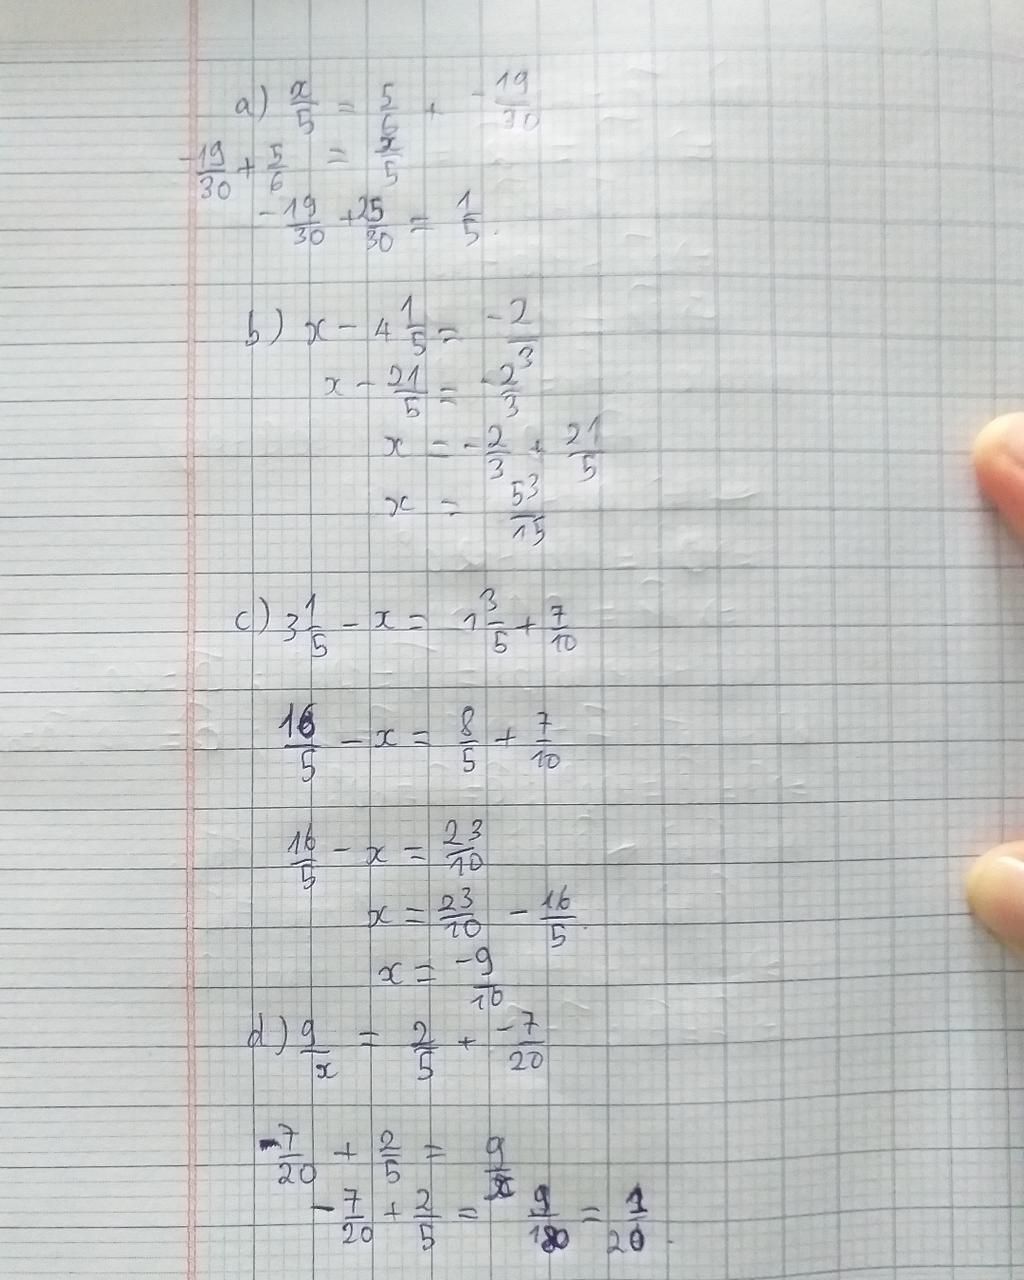 a) x/5 = 5/6 + -19/30
-19/30 + 5/6 = x/5
-19/30 + 25/30 = 1/5.
b) x - 4 1/5 = -2/3
x - 21/5 = -2/3
x = -2/3 + 21/5
x = 53/15
c) 3 1/5 - x = 1 3/5 + 7/10
16/5 - x = 8/5 + 7/10
16/5 - x = 23/10
x = 23/10 - 16/5
x = -9/10
d) 9/x = 2/5 + -7/20
-7/20 + 2/5 = 9/x
-7/20 + 2/5 = 9/180 = 1/20.